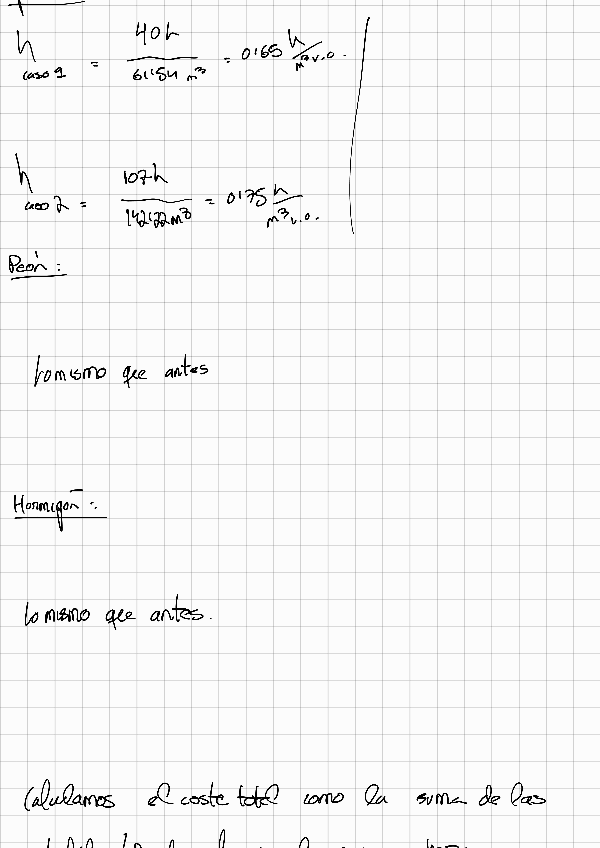 h caso 1 = 40h / 61'54 m³ = 0'65 h / m³ v.o.
h caso 2 = 107h / 142'22 m³ = 0'75 h / m³ v.o.
Peón :
Lo mismo que antes
Hormigón :
Lo mismo que antes.
Calulamos el coste total como la suma de las